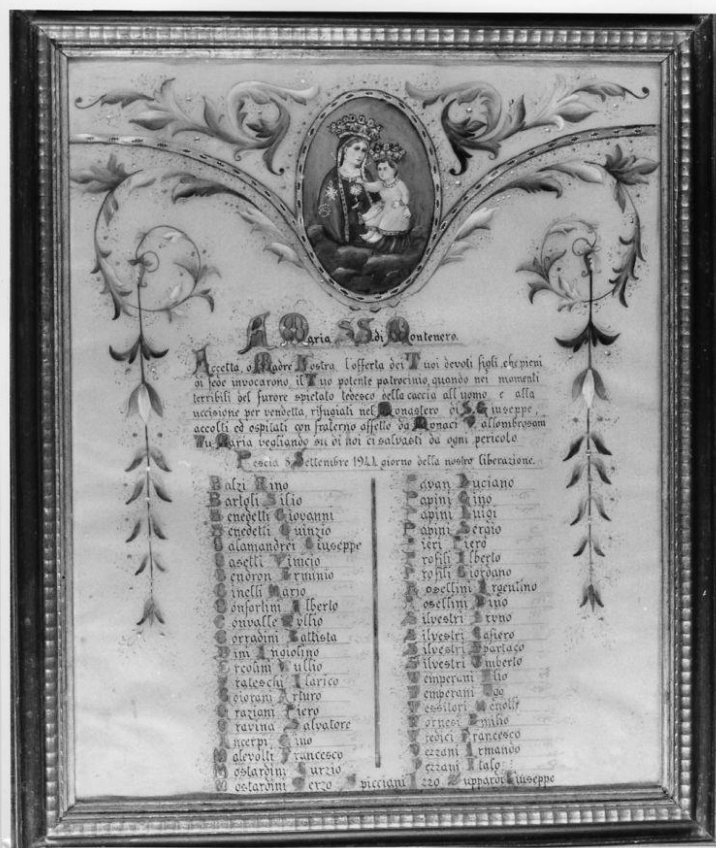 A Maria SS. di Montenero.
Accetta, o Madre Nostra, l'offerta dei Tuoi devoti figli, che pieni
di fede invocarono, il Tuo potente patrocinio, quando nei momenti
terribili del furore spietato tedesco della caccia all'uomo e alla
uccisione per vendetta, rifugiati nel Monastero di S. Giuseppe,
accolti ed ospitati con fraterno affetto da Monaci Vallombrosani
Tu Maria vegliando su di noi ci salvasti da ogni pericolo
Pescia 8 Settembre 1944 giorno della nostra liberazione.
Balzi Nino
Bartoli Silio
Benedetti Giovanni
Benedetti Quinzio
Calamandrei Giuseppe
Casetti Vinicio
Gendron Erminio
Cinelli Mario
Confortini Alberto
Convalle Tullio
Corradini Battista
Dini Angiolino
Ercolini Tullio
Frateschi Ilarico
Goiorani Arturo
Graziani Piero
Gravina Salvatore
Incerpi Gino
Malevolti Francesco
Mostardini Turzio
Mostardini Terzo
Pavan Luciano
Papini Gino
Papini Luigi
Papini Sergio
Pieri Piero
Profili Alberto
Profili Giordano
Rosellini Argentino
Rosellini Dino
Silvestri Bruno
Silvestri Cafiero
Silvestri Spartaco
Silvestri Umberto
Temperani Elio
Temperani Ugo
Tessitori
Tornesi Emilio
Francesco
Vezzani Armando
Vezzani Italo
Spicciani Izzo Zuppardi Giuseppe